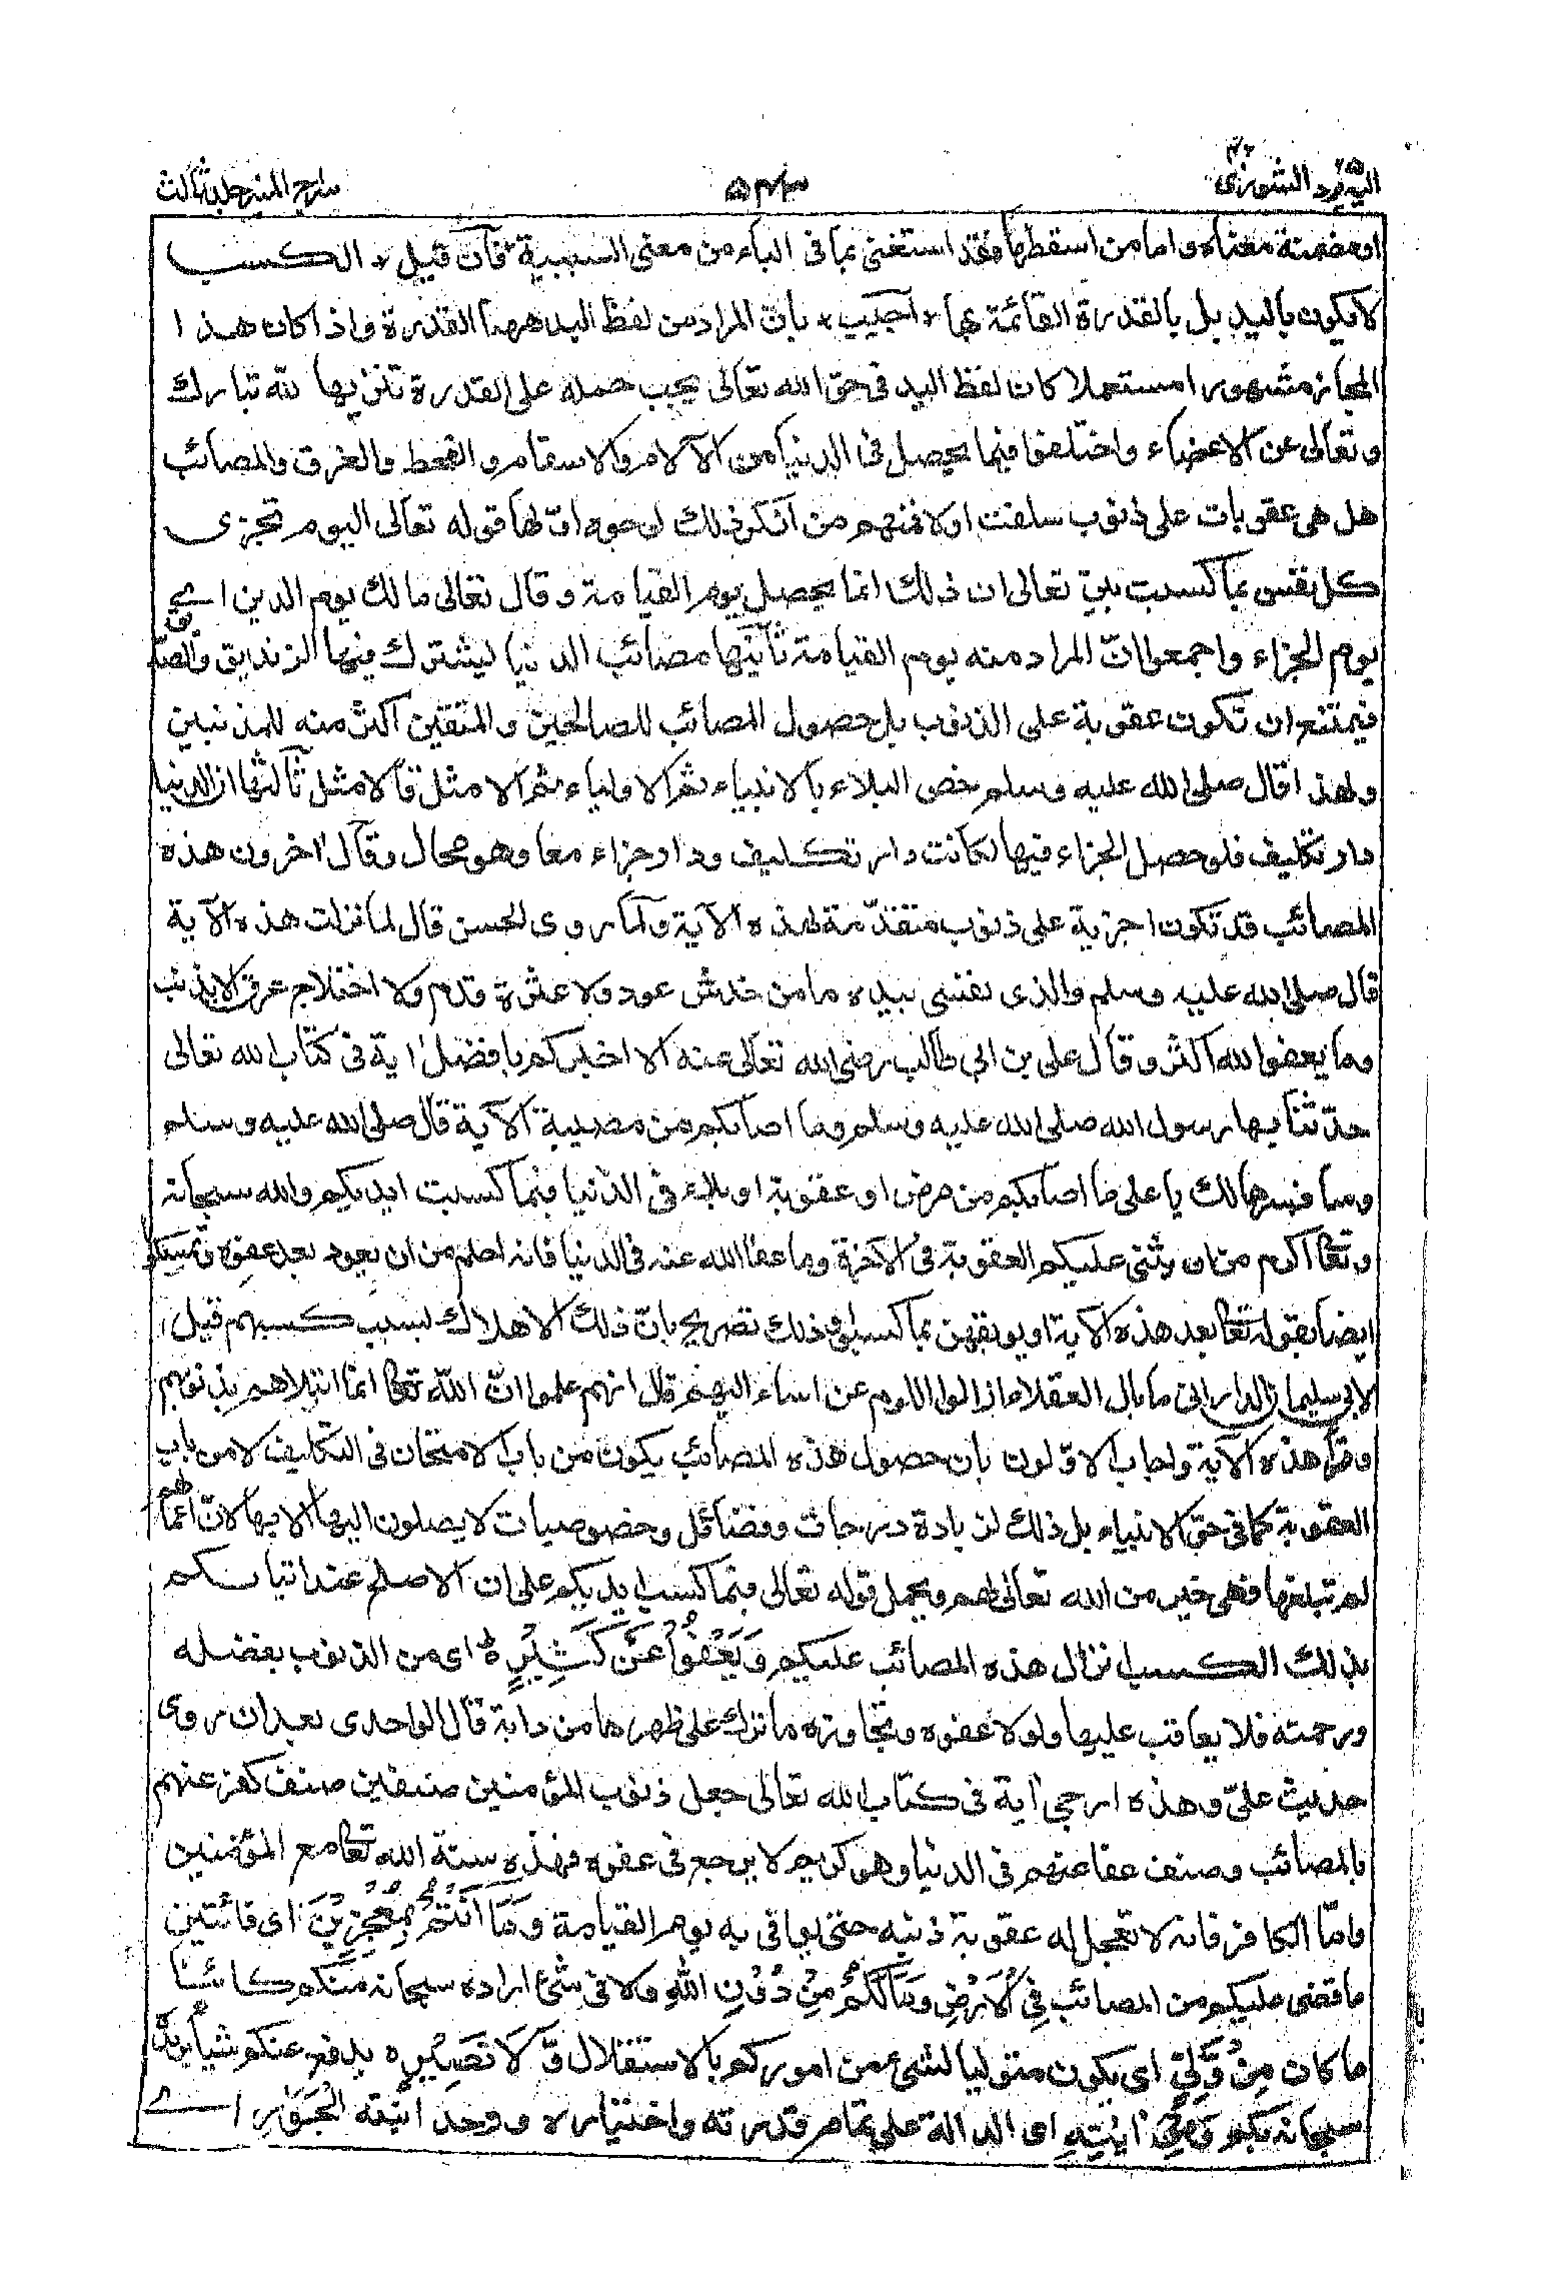 اليه يرد ٢٥ الشورى ٤٢
٥٤٣
سراج المنير جلد ثالث
او مضمنة معناه واما من اسقطها فقد استغنى بما فى الباء من معنى السببية فان قيل الكسب
لا يكون باليد بل بالقدرة القائمة بها اجيب بان المراد من لفظ اليد ههنا القدرة واذا كان هذا
المجاز مشهورا مستعملا كان لفظ اليد فى حق الله تعالى يجب حمله على القدرة تنزيها لله تبارك
وتعالى عن الاعضاء واختلفوا فيما يحصل فى الدنيا من الآلام والاسقام والقحط والغرق والمصائب
هل هى عقوبات على ذنوب سلفت اولا فمنهم من انكر ذلك لوجوه اولها قوله تعالى اليوم تجزى
كل نفس بما كسبت بين تعالى ان ذلك انما يحصل يوم القيامة وقال تعالى مالك يوم الدين اے
يوم الجزاء واجمعوا ان المراد منه يوم القيامة ثانيها مصائب الدنيا ليشترك فيها الزنديق والصديق
فيمتنع ان تكون عقوبة على الذنوب بل حصول المصائب للصالحين والمتقين اكثر منه للمذنبين
ولهذا قال صلى الله عليه وسلم خص البلاء بالانبياء ثم الاولياء ثم الامثل فالامثل ثالثها ان الدنيا
دار تكليف فلو حصل الجزاء فيها لكانت دار تكليف ودار جزاء معا وهو محال وقال اخرون هذه
المصائب قد تكون اجزية على ذنوب متقدمة لهذه الآية ولما روى الحسن قال لما نزلت هذه الآية
قال صلى الله عليه وسلم والذى نفسى بيده ما من خدش عود ولا عثرة قدم ولا اختلاج عرق الا بذنب
وما يعفوا الله اكثر وقال على بن ابى طالب رضى الله تعالى عنه الا اخبركم بافضل اية فى كتاب الله تعالى
حدثنا بها رسول الله صلى الله عليه وسلم وما اصابكم من مصيبة الآية قال صلى الله عليه وسلم
وسافسرها لك يا على ما اصابكم من مرض او عقوبة او بلاء فى الدنيا فبما كسبت ايديكم والله سبحانه
وتعالى اكرم من ان يثنى عليكم العقوبة فى الآخرة وما عفا الله عنه فى الدنيا فانه احلم من ان يعود بعد عفوه وتمسكوا
ايضا بقوله تعالى بعد هذه الآية او يوبقهن بما كسبوا وذلك تصريح بان ذلك الاهلاك بسبب كسبهم قيل
لابى سليمان الدارانى ما بال العقلاء ازالوا اللوم عن اساء اليهم قال انهم علموا ان الله تعالى انما ابتلاهم بذنوبهم
وقرأ هذه الآية واجاب الاولون بان حصول هذه المصائب يكون من باب الامتحان فى التكليف لا من باب
العقوبة كما فى حق الانبياء بل ذلك لزيادة درجات وفضائل وخصوصيات لا يصلون اليها الا بها لان اعمالهم
لم تبلغها فهى خير من الله تعالى لهم ويحمل قوله تعالى فبما كسبت ايديكم على ان الاصلح عند اتيانكم
بذلك الكسب انزال هذه المصائب عليكم وَيَعْفُوْا عَنْ كَثِيْرٍ ه اى من الذنوب بفضله
ورحمته فلا يعاقب عليها ولولا عفوه وتجاوزه ما ترك على ظهرها من دابة قال الواحدى بعد ان روى
حديث علىّ وهذه ارجى اية فى كتاب الله تعالى جعل ذنوب المؤمنين صنفين صنف كفر عنهم
بالمصائب وصنف عفا عنهم فى الدنيا وهو كريم لا يرجع فى عفوه فهذه سنة الله تعالى مع المؤمنين
واما الكافر فانه لا تعجل له عقوبة ذنبه حتى يوافى به يوم القيامة وَمَا اَنْتُمْ بِمُعْجِزِيْنَ اى فائتين
ما قضى عليكم من المصائب فِى الْاَرْضِ وَمَا لَكُمْ مِنْ دُوْنِ اللهِ ولا فى شئ اراده سبحانه منكم كائنا
ما كان مِنْ وَّلِىٍّ اى يكون متوليا لشئ من اموركم بالاستقلال وَّلَا نَصِيْرٍ ه يدفع عنكم شيأ يريد
سبحانه بكم وَمِنْ اٰيٰتِهِ اى الدالة على تمام قدرته واختياره ووحدانيته الْجَوَارِ اے